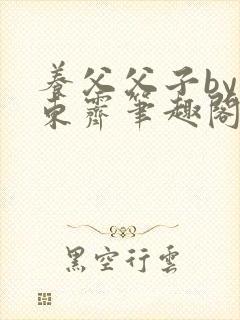 養父父子by
東霽筆趣閣
黑空行雲